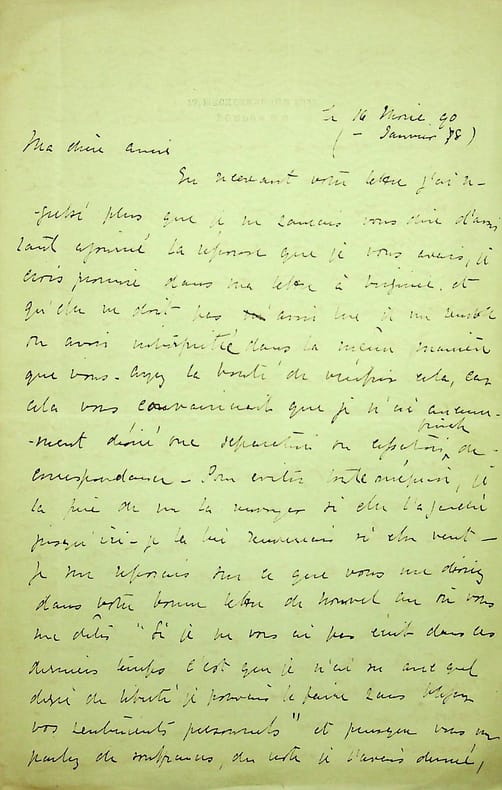 Le 16 Avril 90
(- Janvier 78)
Ma chère amie
En recevant votre lettre j'ai re-
-gretté plus que je ne saurais vous dire d'avoir
tant ajourné la réponse que je vous avais, je
crois promise dans ma lettre à et
qu'elle ne doit pas avoir lue il me semble
ou avoir interprétée dans la même manière
que vous - ayez la bonté de vérifier cela, car
cela vous convaincrait que je n'ai aucune-
-ment désiré une séparation ou cessation de
correspondance - Pour éviter toute méprise, je
la prie de me la renvoyer si elle l'a gardée
jusqu'ici - je la lui rendrai si elle veut -
Je me reposais sur ce que vous me disiez
dans votre bonne lettre de nouvel an où vous
me dites "Si je ne vous ai pas écrit dans ces
derniers temps c'est que je n'ai su avec quel
degré de liberté je pouvais le faire sans
vos sentiments personnels" et puisque vous me
parlez de souffrances, du reste je l'avais deviné,